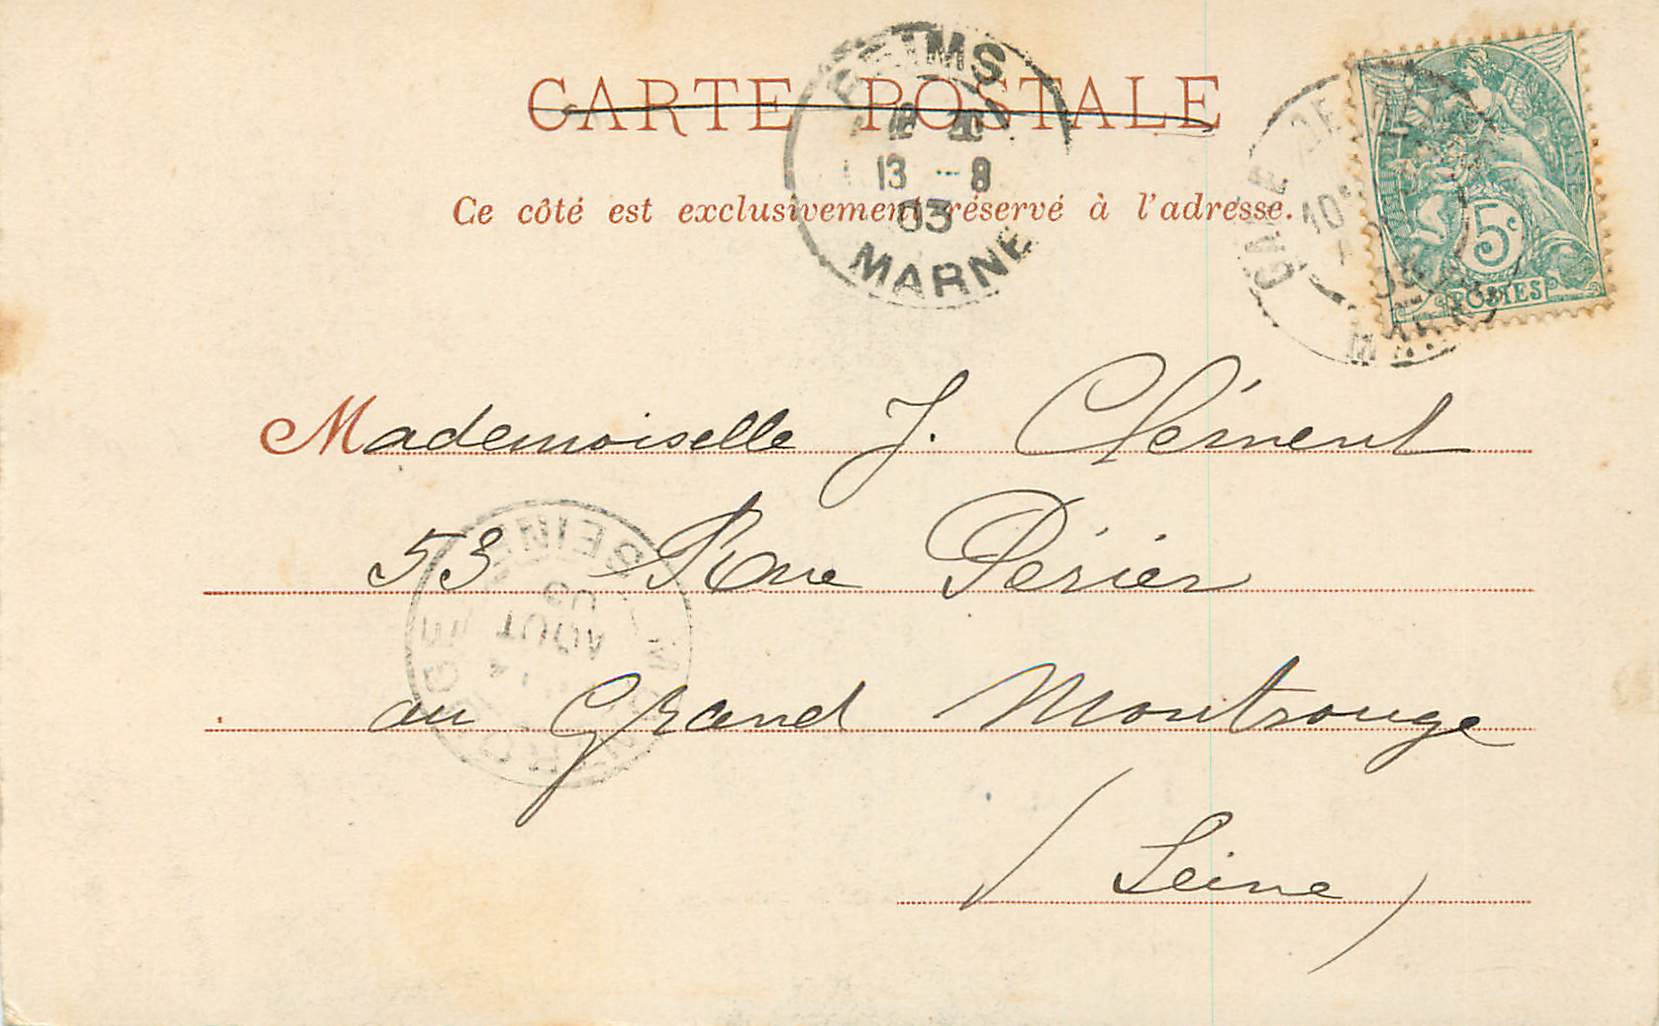 CARTE POSTALE
REIMS
12 20
13 - 8
03
MARNE
Ce côté est exclusivement réservé à l'adresse.
GARE DE
5c
POSTES
Mademoiselle J. Clément
53 Rue Périer
au Grand Montrouge
(Seine)
MONTROUGE
AOUT
03
SEINE